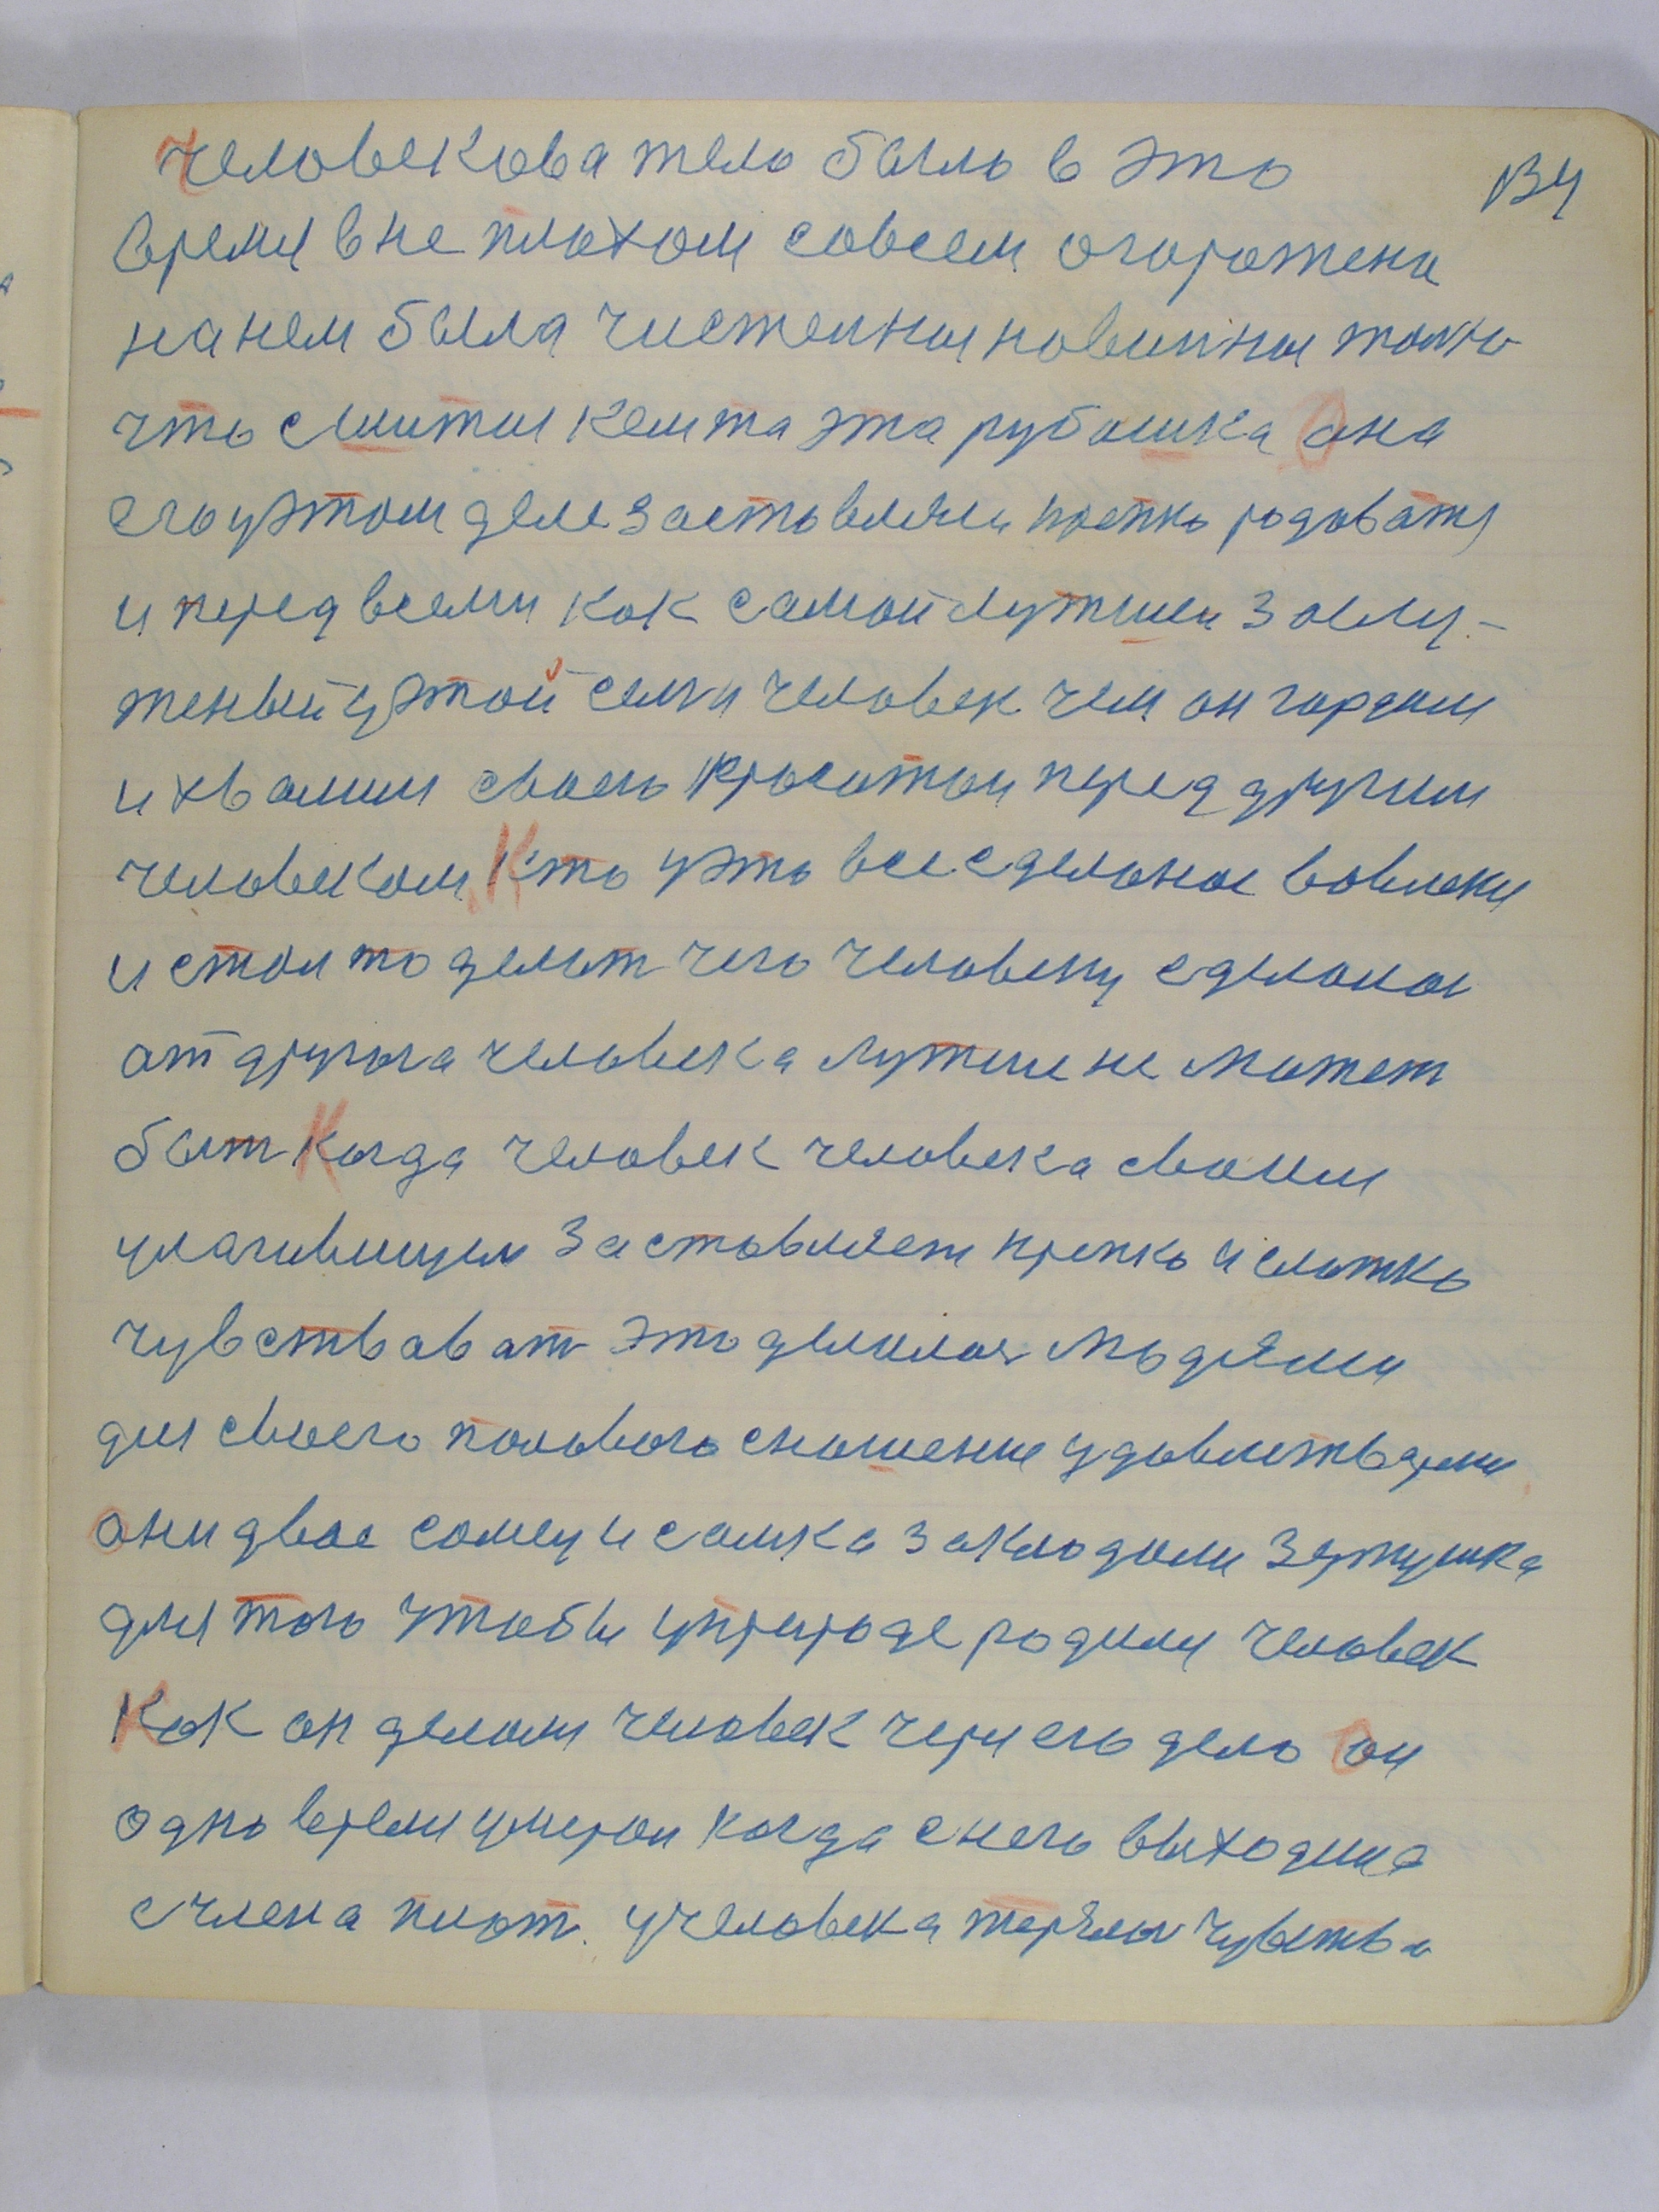 134
Человекова тело было в это
время в не плохом совсем огорожена
на нем была чистеиная новиинная толко
что сшитая кемта эта рубашка Она
его у этом деле заставляла крепко радоват
и перед всеми как самой лутшеи заслу-
женый у этой семи человек чем он гордился
и хвалился своею красотой перед другим
человеком. Кто у это все сделоное вовлекся
и стал то делат чего человеку сделоноя
от другога человека лутше не может
быт Когда человек человека своим
заставляет крепко и слатко
чувствават это делилая людями
для своего половога сношения удовлетваряли
Они двое самец и самка закладали зятушка
для того чтобы у природе родился человек
Как он делали человек через его дело Он
одно время умерал когда с него выходила
с члена пиот. у человека терялся чувства